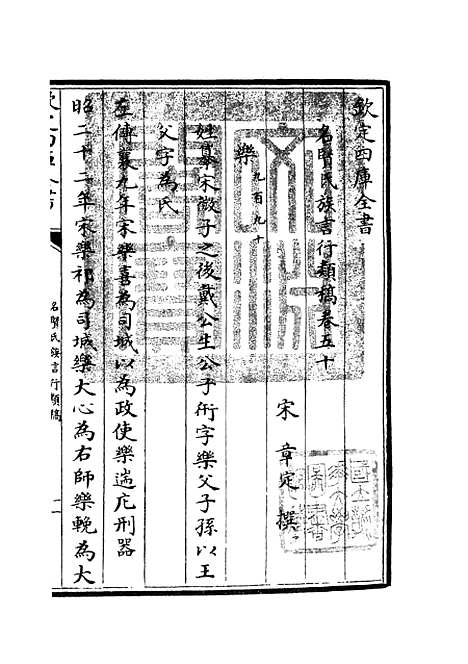 欽定四庫全書
名賢氏族言行類稿卷五十
宋 章定 撰
樂 九百九十
姓纂宋微子之後戴公生公子衎字樂父子孫以王
父字為氏
左傳襄九年宋樂喜為司城以為政使樂遄庀刑器
昭二十二年宋樂祁為司城樂大心為右師樂輓為大
名賢氏族言行類稿